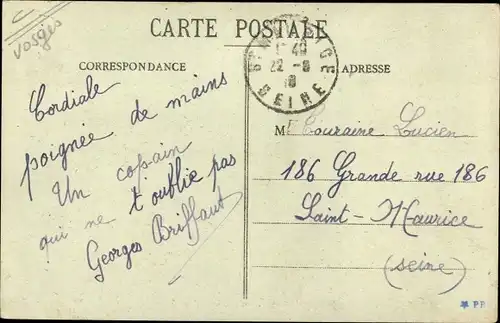 Vosges
CARTE POSTALE
CORRESPONDANCE
ADRESSE
1 * 40
22 - 6
SEINE
Cordiale
poignée de mains
Un copain
qui ne t'oublie pas
Georges Briffaut
M Touraine Lucien
186 Grande rue 186
Saint-Maurice
(Seine)
* P.P